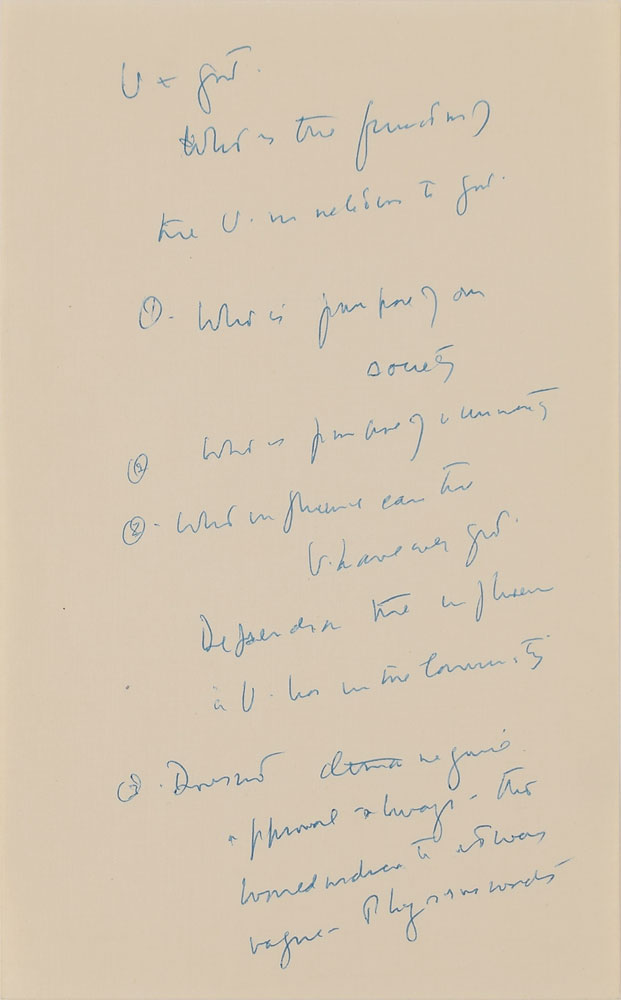 U + govt.
What is the function of
the U. in relation to govt.
①. What is purpose of our
society
② What is purpose of university
②. What influence can the
U. have over govt.
Depends on the influence
a U. has in the Community
③. Doesn't require
approval always - this
would indicate it was
vague -